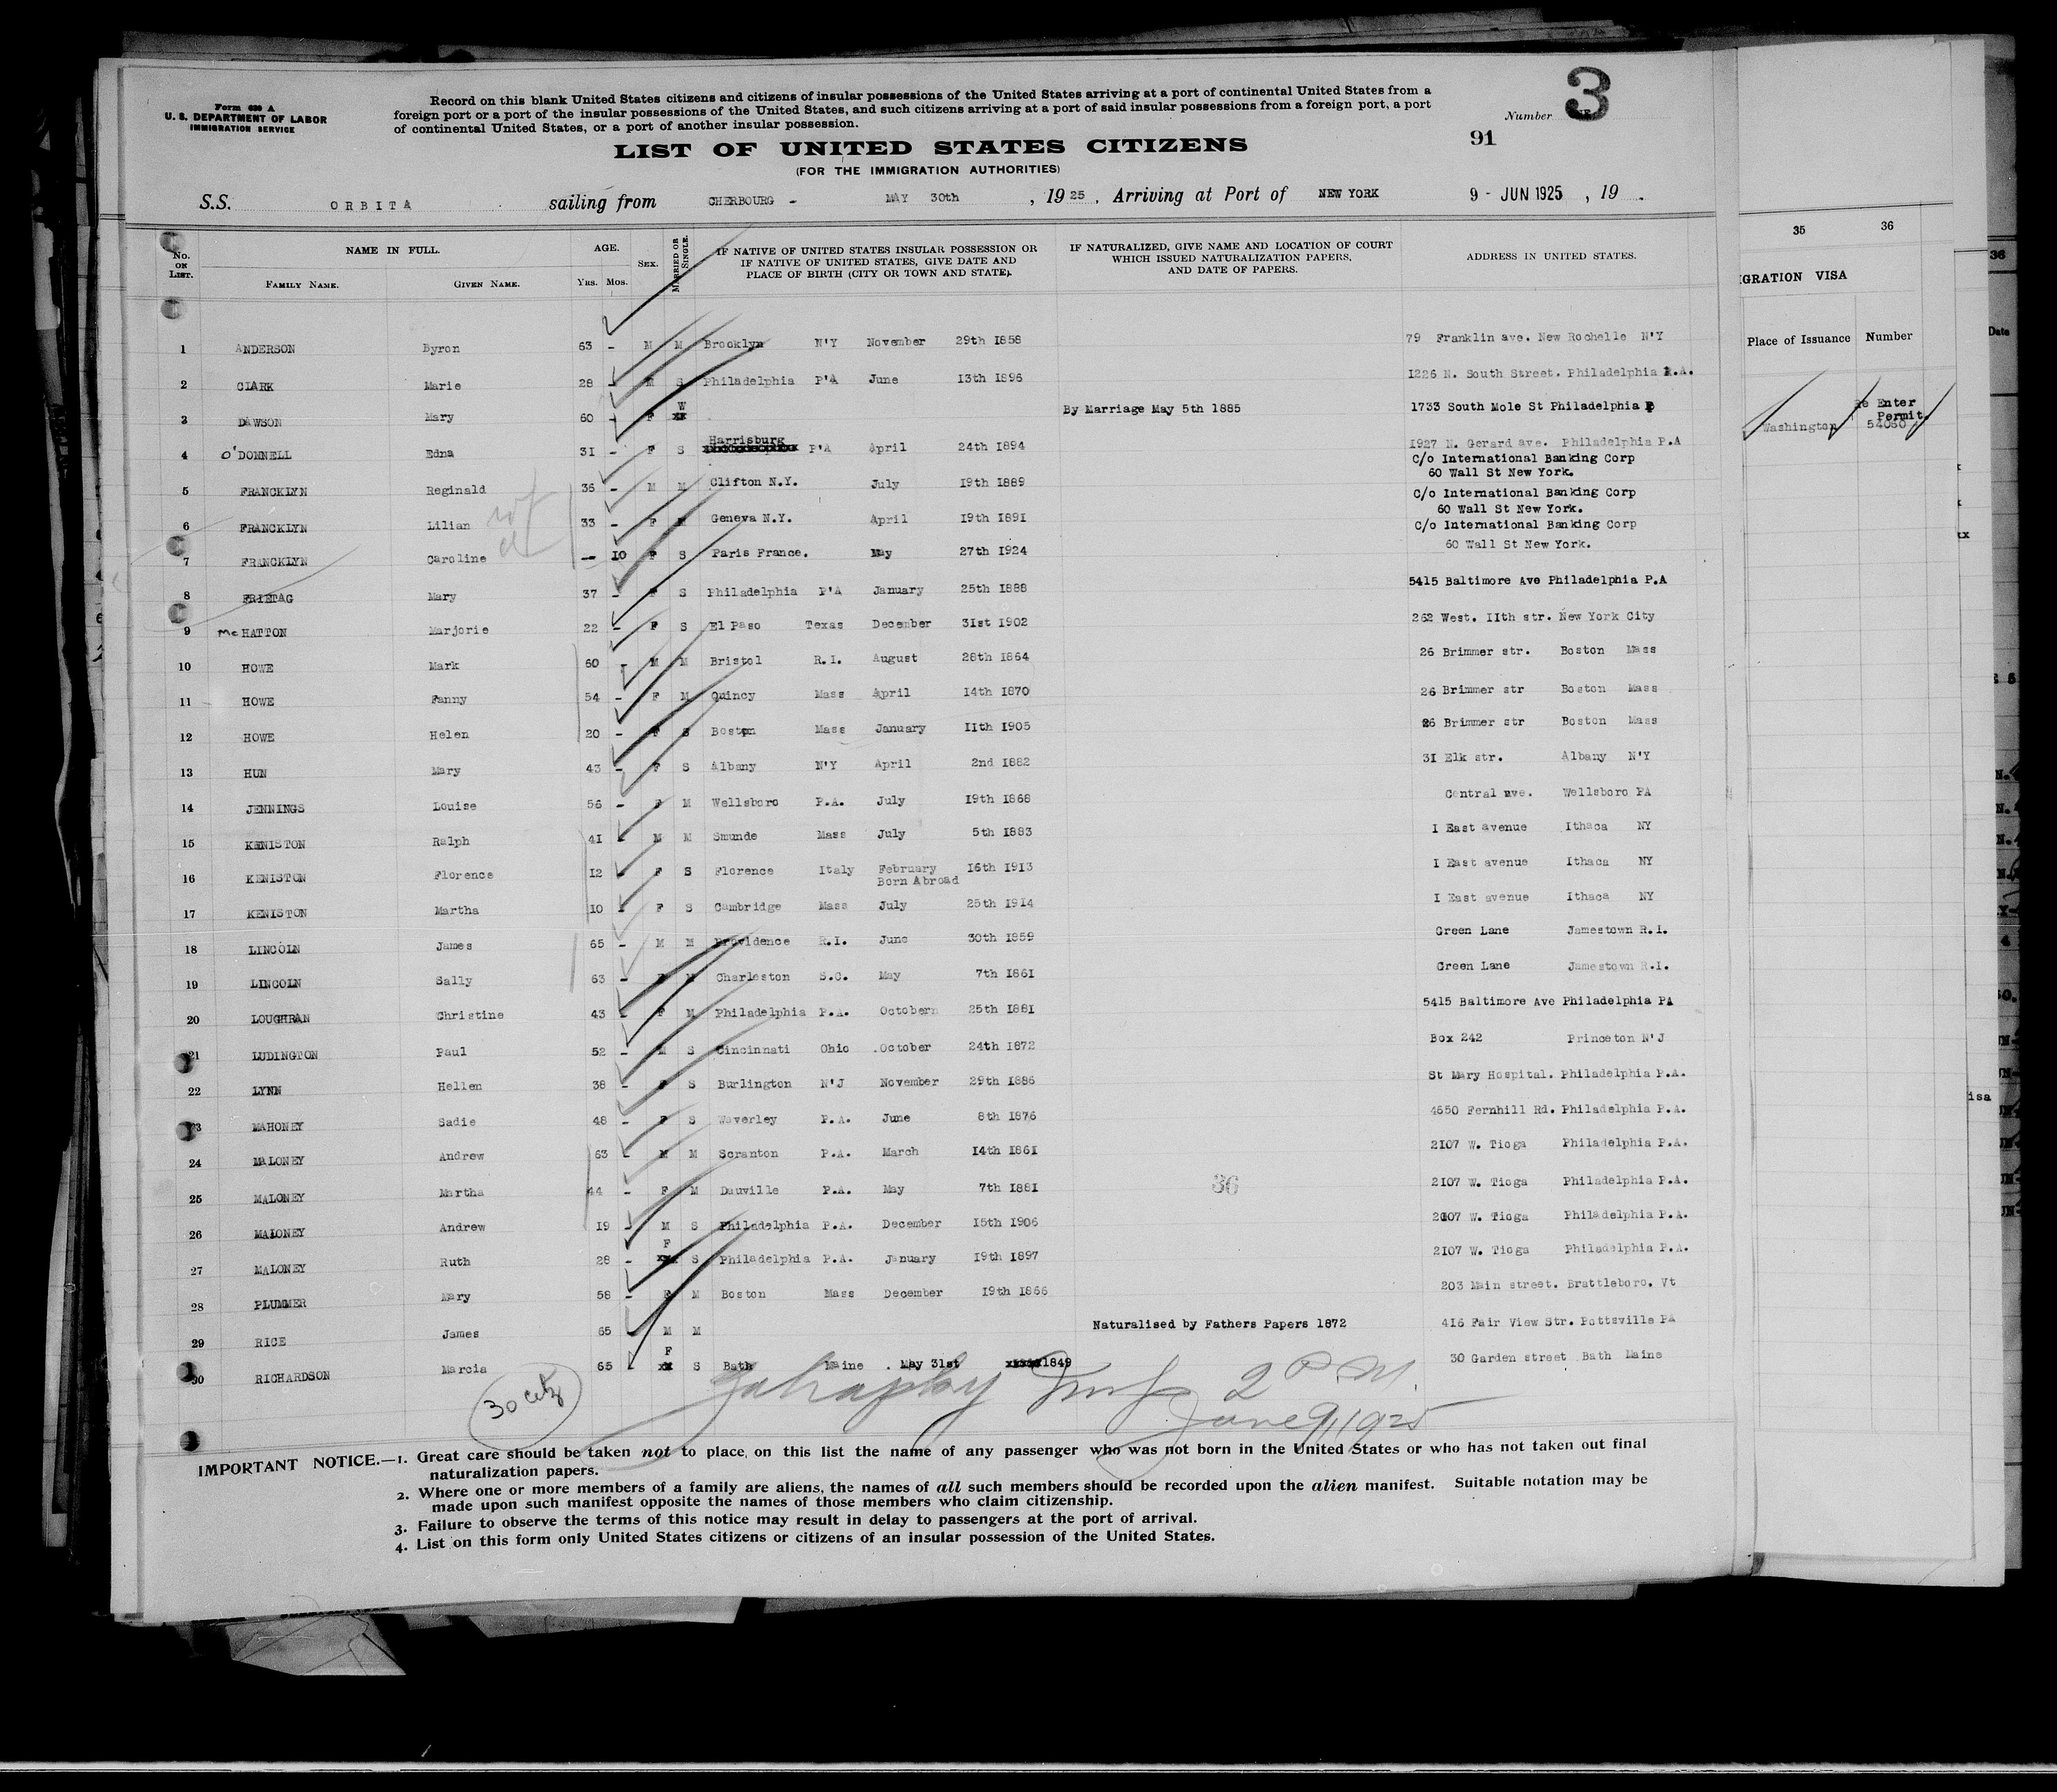 Form 630 A
U. S. DEPARTMENT OF LABOR
IMMIGRATION SERVICE
Record on this blank United States citizens and citizens of insular possessions of the United States arriving at a port of continental United States from a
foreign port or a port of the insular possessions of the United States, and such citizens arriving at a port of said insular possessions from a foreign port, a port
of continental United States, or a port of another insular possession.
Number 3
91
LIST OF UNITED STATES CITIZENS
(FOR THE IMMIGRATION AUTHORITIES)
S.S. ORBITA sailing from CHERBOURG - MAY 30th , 1925 , Arriving at Port of NEW YORK 9 - JUN 1925 , 19 .
No. ON LIST. NAME IN FULL. FAMILY NAME. GIVEN NAME. AGE. YRS. MOS. SEX. MARRIED OR SINGLE. IF NATIVE OF UNITED STATES INSULAR POSSESSION OR IF NATIVE OF UNITED STATES, GIVE DATE AND PLACE OF BIRTH (CITY OR TOWN AND STATE). IF NATURALIZED, GIVE NAME AND LOCATION OF COURT WHICH ISSUED NATURALIZATION PAPERS, AND DATE OF PAPERS. ADDRESS IN UNITED STATES.
35 36
IGRATION VISA
Place of Issuance Number
36
Date
1 ANDERSON Byron 63 - M M Brooklyn N'Y November 29th I858 79 Franklin ave. New Rochelle N'Y
2 CLARK Marie 28 - M S Philadelphia P'A June I3th I896 I226 N. South Street. Philadelphia P.A.
3 DAWSON Mary 60 - F W By Marriage May 5th 1885 1733 South Mole St Philadelphia P Washington Re Enter Permit. 54060
4 O'DONNELL Edna 3I - F S Harrisburg P'A April 24th I894 I927 N. Gerard ave. Philadelphia P.A
5 FRANCKLYN Reginald 36 - M M Clifton N.Y. July I9th I889 C/o International Banking Corp 60 Wall St New York.
6 FRANCKLYN Lilian 33 - F M Geneva N.Y. April I9th I89I C/o International Banking Corp 60 Wall St New York.
7 FRANCKLYN Caroline -- IO F S Paris France. May 27th I924 C/o International Banking Corp 60 Wall St New York.
8 FRIETAG Mary 37 - F S Philadelphia P'A January 25th I888 5415 Baltimore Ave Philadelphia P.A
9 McHATTON Marjorie 22 - F S El Paso Texas December 3Ist I902 262 West. IIth str. New York City
10 HOWE Mark 60 - M M Bristol R.I. August 28th I864 26 Brimmer str. Boston Mass
11 HOWE Fanny 54 - F M Quincy Mass April I4th I870 26 Brimmer str Boston Mass
12 HOWE Helen 20 - F S Boston Mass January IIth I905 26 Brimmer str Boston Mass
13 HUN Mary 43 - F S Albany N'Y April 2nd I882 3I Elk str. Albany N'Y
14 JENNINGS Louise 56 - F M Wellsboro P.A. July I9th I868 Central ave. Wellsboro PA
15 KENISTON Ralph 4I - M M Smunde Mass July 5th I883 I East avenue Ithaca NY
16 KENISTON Florence I2 - F S Florence Italy February I6th I9I3 Born Abroad I East avenue Ithaca NY
17 KENISTON Martha IO - F S Cambridge Mass July 25th I9I4 I East avenue Ithaca NY
18 LINCOLN James 65 - M M Providence R.I. June 30th I859 Green Lane Jamestown R.I.
19 LINCOLN Sally 63 - F M Charleston S.C. May 7th I86I Green Lane Jamestown R.I.
20 LOUGHRAN Christine 43 - F M Philadelphia P.A. Octobern 25th I88I 5415 Baltimore Ave Philadelphia PA
21 LUDINGTON Paul 52 - M S Cincinnati Ohio .October 24th I872 Box 242 Princeton N'J
22 LYNN Hellen 38 - F S Burlington N'J November 29th I886 St Mary Hospital. Philadelphia P.A.
23 MAHONEY Sadie 48 - F S Waverley P.A. June 8th I876 4650 Fernhill Rd. Philadelphia P.A.
24 MALONEY Andrew 63 - M M Scranton P.A. March I4th I86I 2I07 W. Tioga Philadelphia P.A.
25 MALONEY Martha 44 - F M Dauville P.A. May 7th I88I 2I07 W. Tioga Philadelphia P.A.
36
26 MALONEY Andrew I9 - M S Philadelphia P.A. December I5th I906 2I07 W. Tioga Philadelphia P.A.
27 MALONEY Ruth 28 - F S Philadelphia P.A. January I9th I897 2I07 W. Tioga Philadelphia P.A.
28 PLUMMER Mary 58 - F M Boston Mass December I9th I866 203 Main street. Brattleboro. Vt
29 RICE James 65 - M M Naturalised by Fathers Papers 1872 4I6 Fair View Str. Pottsville PA
30 RICHARDSON Marcia 65 - F S Bath Maine . May 31st 1849 30 Garden street Bath Maine
30 citz
2 P.M.
June 9, 1925
IMPORTANT NOTICE.—1. Great care should be taken not to place on this list the name of any passenger who was not born in the United States or who has not taken out final
naturalization papers.
2. Where one or more members of a family are aliens, the names of all such members should be recorded upon the alien manifest. Suitable notation may be
made upon such manifest opposite the names of those members who claim citizenship.
3. Failure to observe the terms of this notice may result in delay to passengers at the port of arrival.
4. List on this form only United States citizens or citizens of an insular possession of the United States.